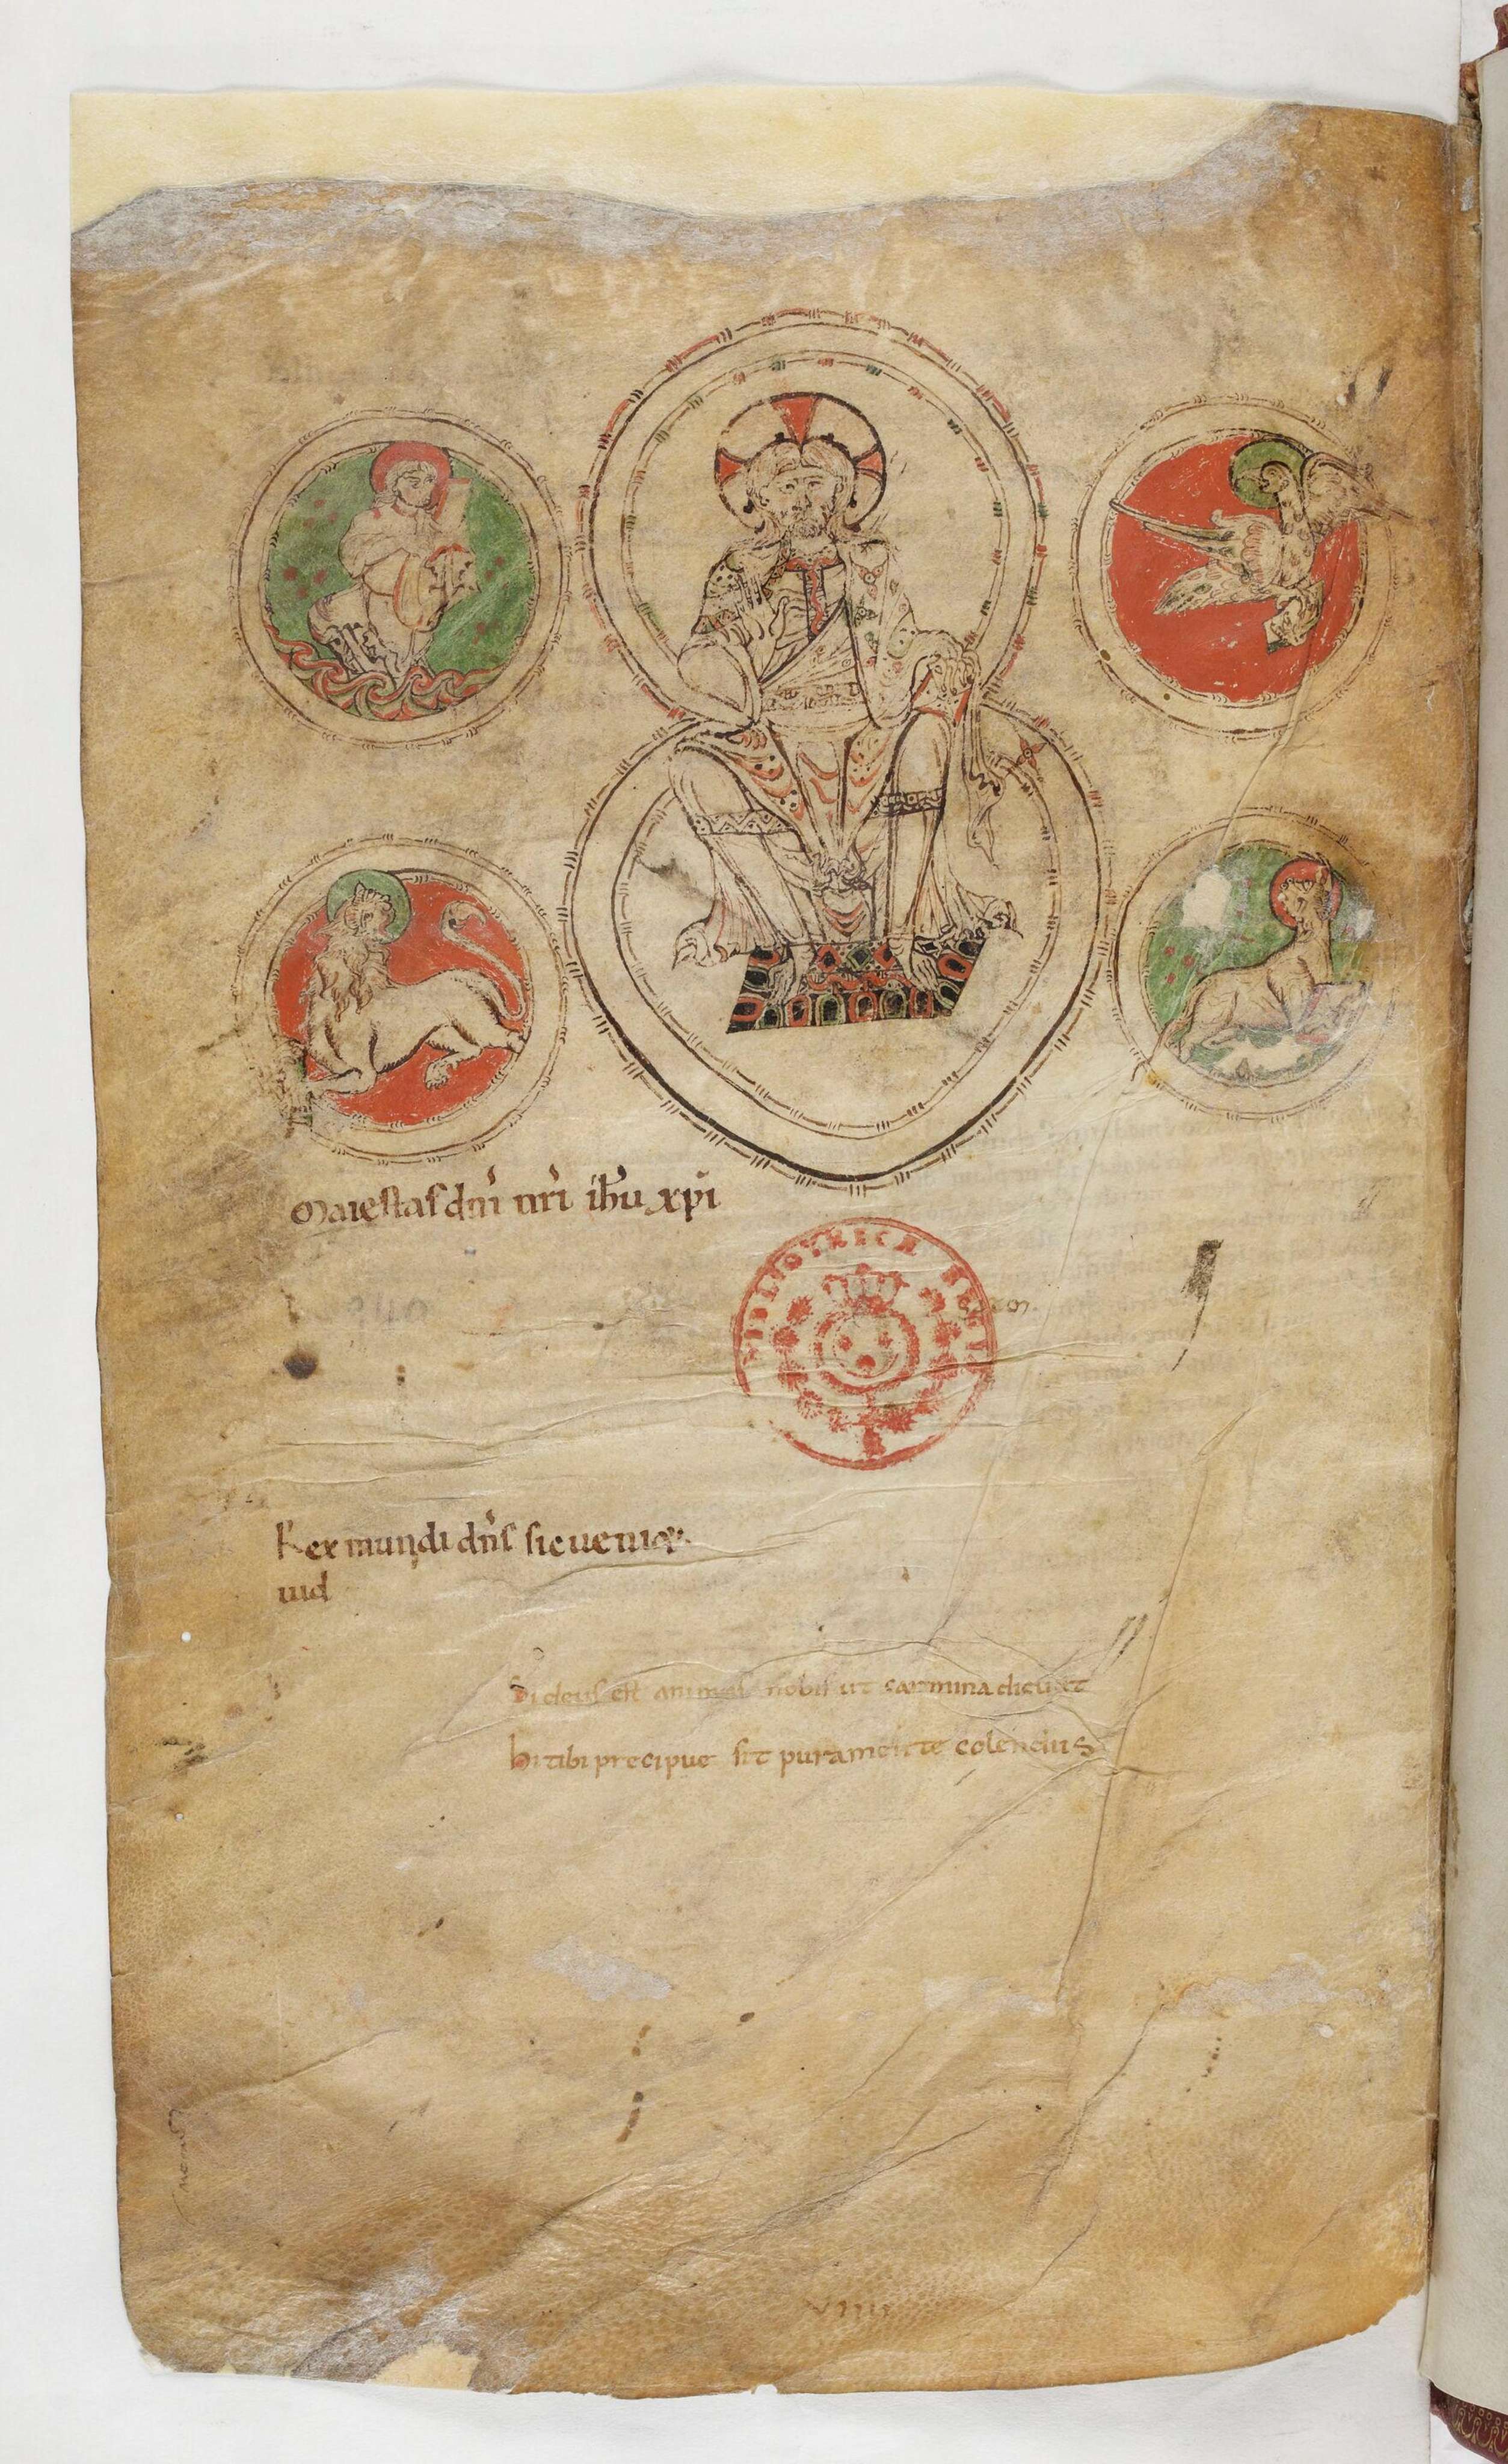 Maiestas dnı̄ nrı̄ ıħu xpı̄
BIBLIOTHECA REGI
Rex mundi dn̄s sic
uid
Si deus est animus nobis ut carmina dicunt
hi tibi precipue sit pura mente colendus
viiii